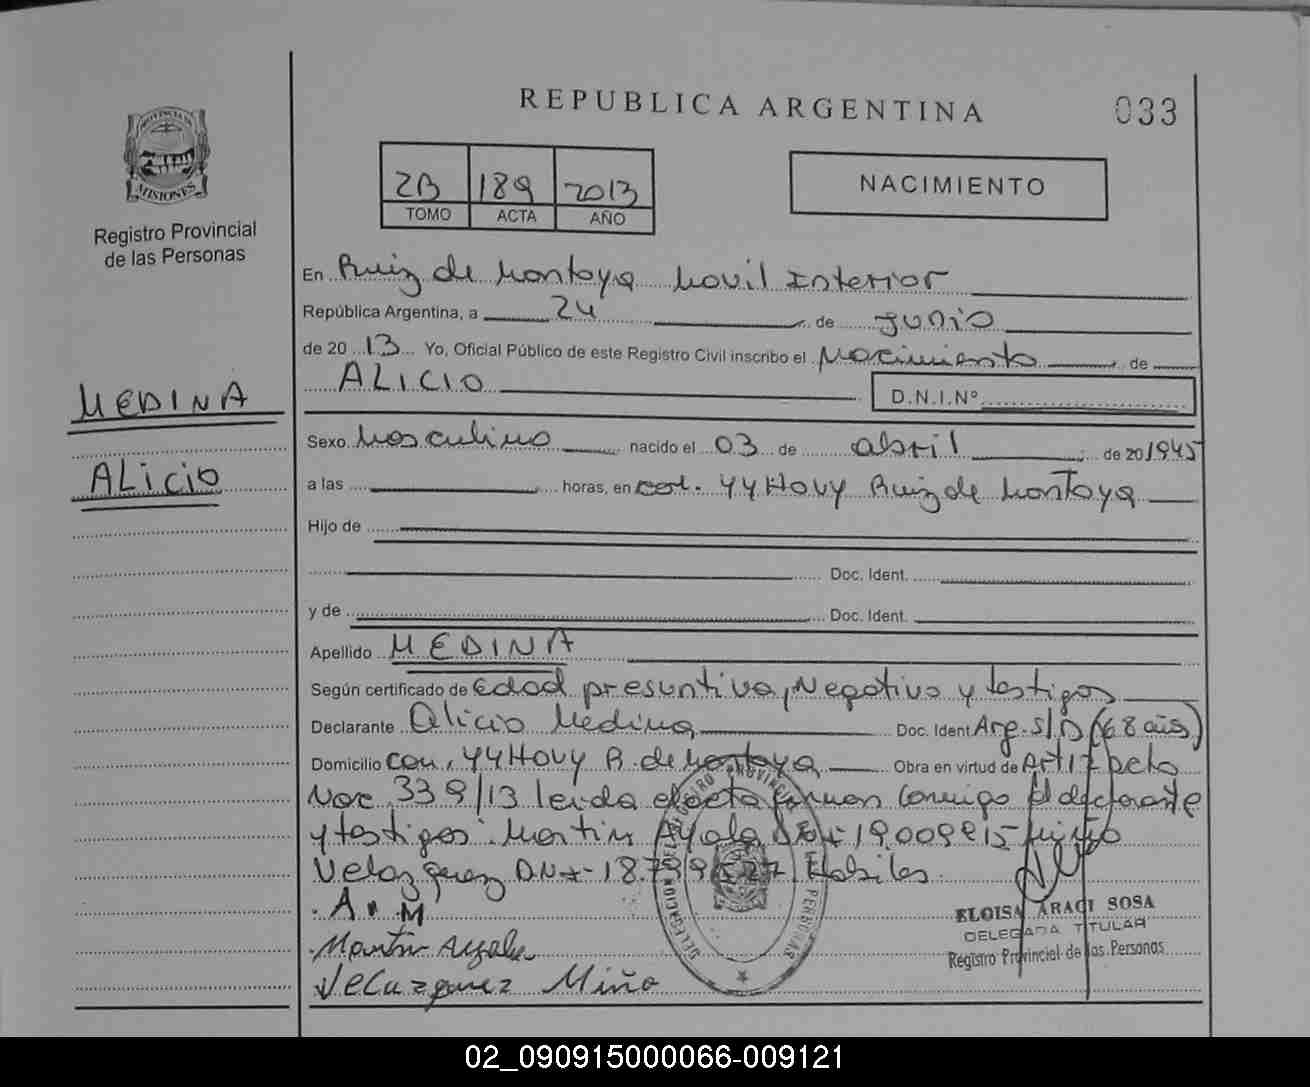 REPUBLICA ARGENTINA
033
PROVINCIA DE
MISIONES
Registro Provincial
de las Personas
2B 189 2013
TOMO ACTA AÑO
NACIMIENTO
En Ruiz de Montoya Movil Interior
República Argentina, a 24 de Junio
de 20 13 Yo, Oficial Público de este Registro Civil inscribo el Nacimiento de
ALICIO
D.N.I.Nº
MEDINA
ALICIO
Sexo Masculino nacido el 03 de abril de 20 1945
a las horas, en YYHOVY Ruiz de Montoya
Hijo de
Doc. Ident.
y de Doc. Ident.
Apellido MEDINA
Según certificado de Edad presuntiva, Negativo y testigos
Declarante Alicio Medina Doc. Ident Arg. S/D (68 años)
Domicilio YYHOVY R. de Montoya Obra en virtud de Art 17
339/13 leida el acta firman conmigo el declarante
y testigos: Martin Ayala
Velazquez Habiles.
A. M
Martin Ayala
Velazquez Miño
ELOISA ARACI SOSA
DELEGADA TITULAR
Registro Provincial de las Personas
02_090915000066-009121